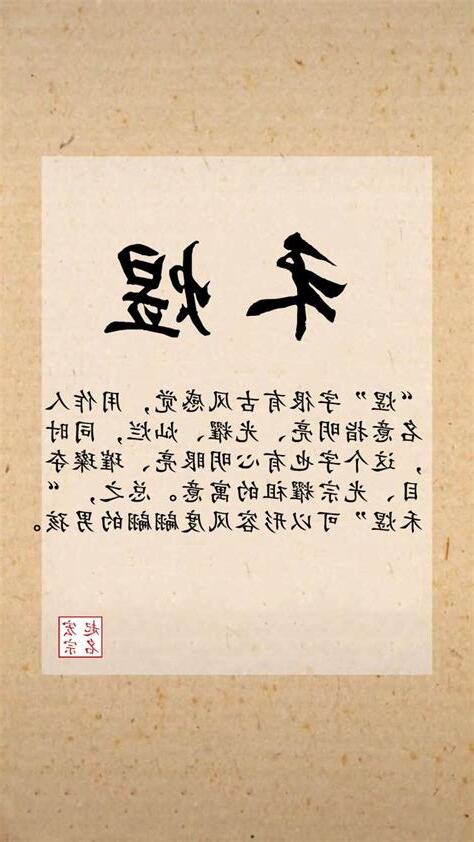 禾煜
“煜”字很有古风感觉，用作人
名意指明亮、光耀、灿烂，同时
，这个字也有心明眼亮、璀璨夺
目、光宗耀祖的寓意。总之，“
禾煜”可以形容风度翩翩的男孩。
宏宗
起名